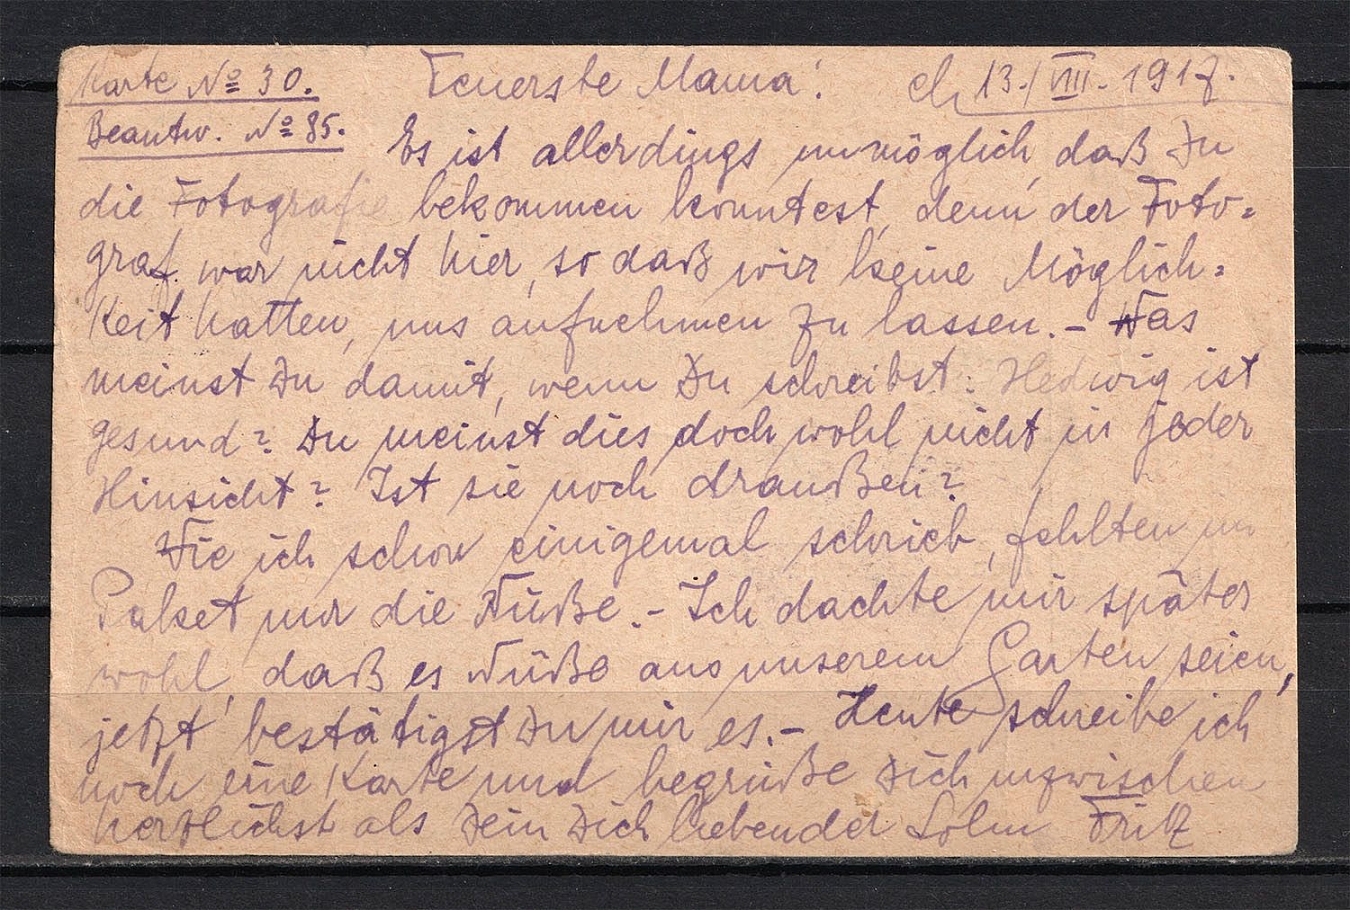 Karte No 30. Teuerste Mama! 13./VIII. 1917.
Beantw. No 85.
Es ist allerdings unmöglich, daß Du
die Fotografie bekommen konntest, denn der Foto=
graf war nicht hier, so daß wir keine Möglich=
keit hatten, uns aufnehmen zu lassen. – Was
meinst Du damit, wenn Du schreibst: Hedwig ist
gesund? Du meinst dies doch wohl nicht in jeder
Hinsicht? Ist sie noch draußen?
Wie ich schon einigemal schrieb, fehlten im
Paket nur die Nüße. – Ich dachte mir später
wohl, daß es Nüße aus unserem Garten seien,
jetzt bestätigst Du mir es. – Heute schreibe ich
noch eine Karte und begrüße Dich inzwischen
herzlichst als Dein Dich liebender Sohn Fritz